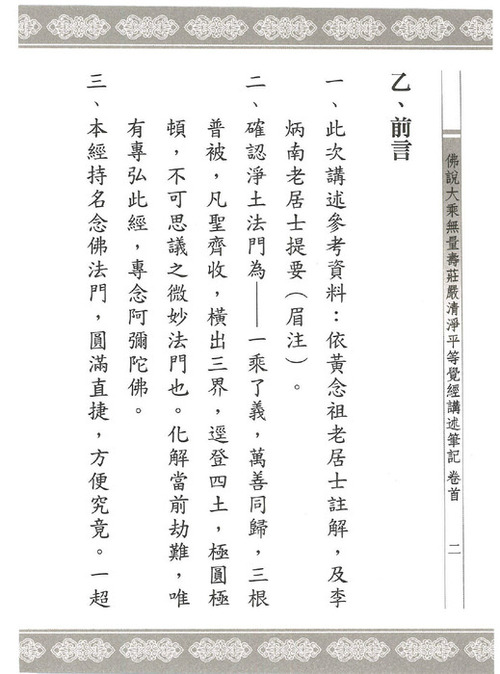 佛說大乘無量壽莊嚴清淨平等覺經講述筆記 卷首 二
乙、前言
一、此次講述參考資料：依黃念祖老居士註解，及李
炳南老居士提要（眉注）。
二、確認淨土法門為——一乘了義，萬善同歸，三根
普被，凡聖齊收，橫出三界，逕登四土，極圓極
頓，不可思議之微妙法門也。化解當前劫難，唯
有專弘此經，專念阿彌陀佛。
三、本經持名念佛法門，圓滿直捷，方便究竟。一超